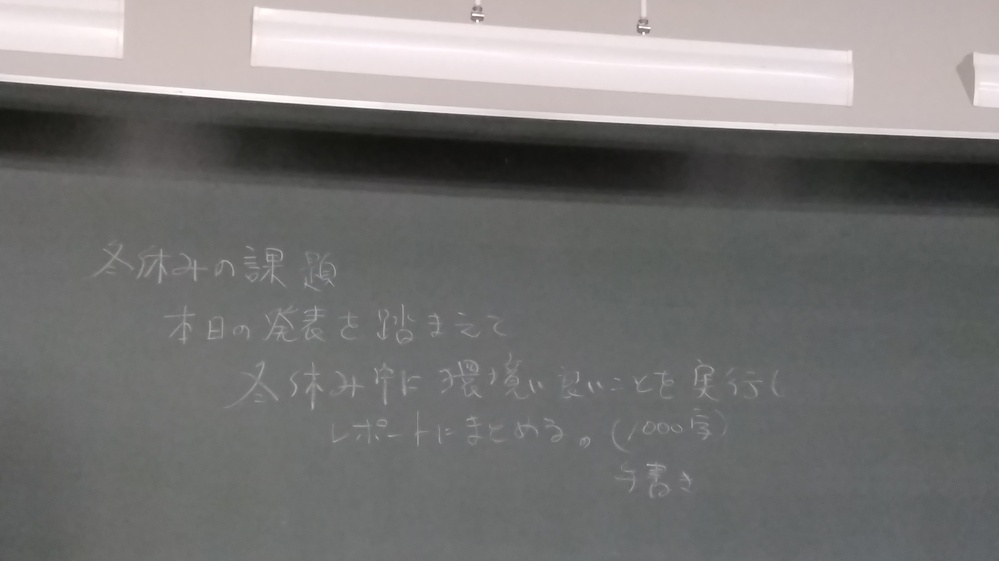 冬休みの課題
本日の発表を踏まえて
冬休み中に環境に良いことを実行し
レポートにまとめる。(1000字)
手書き